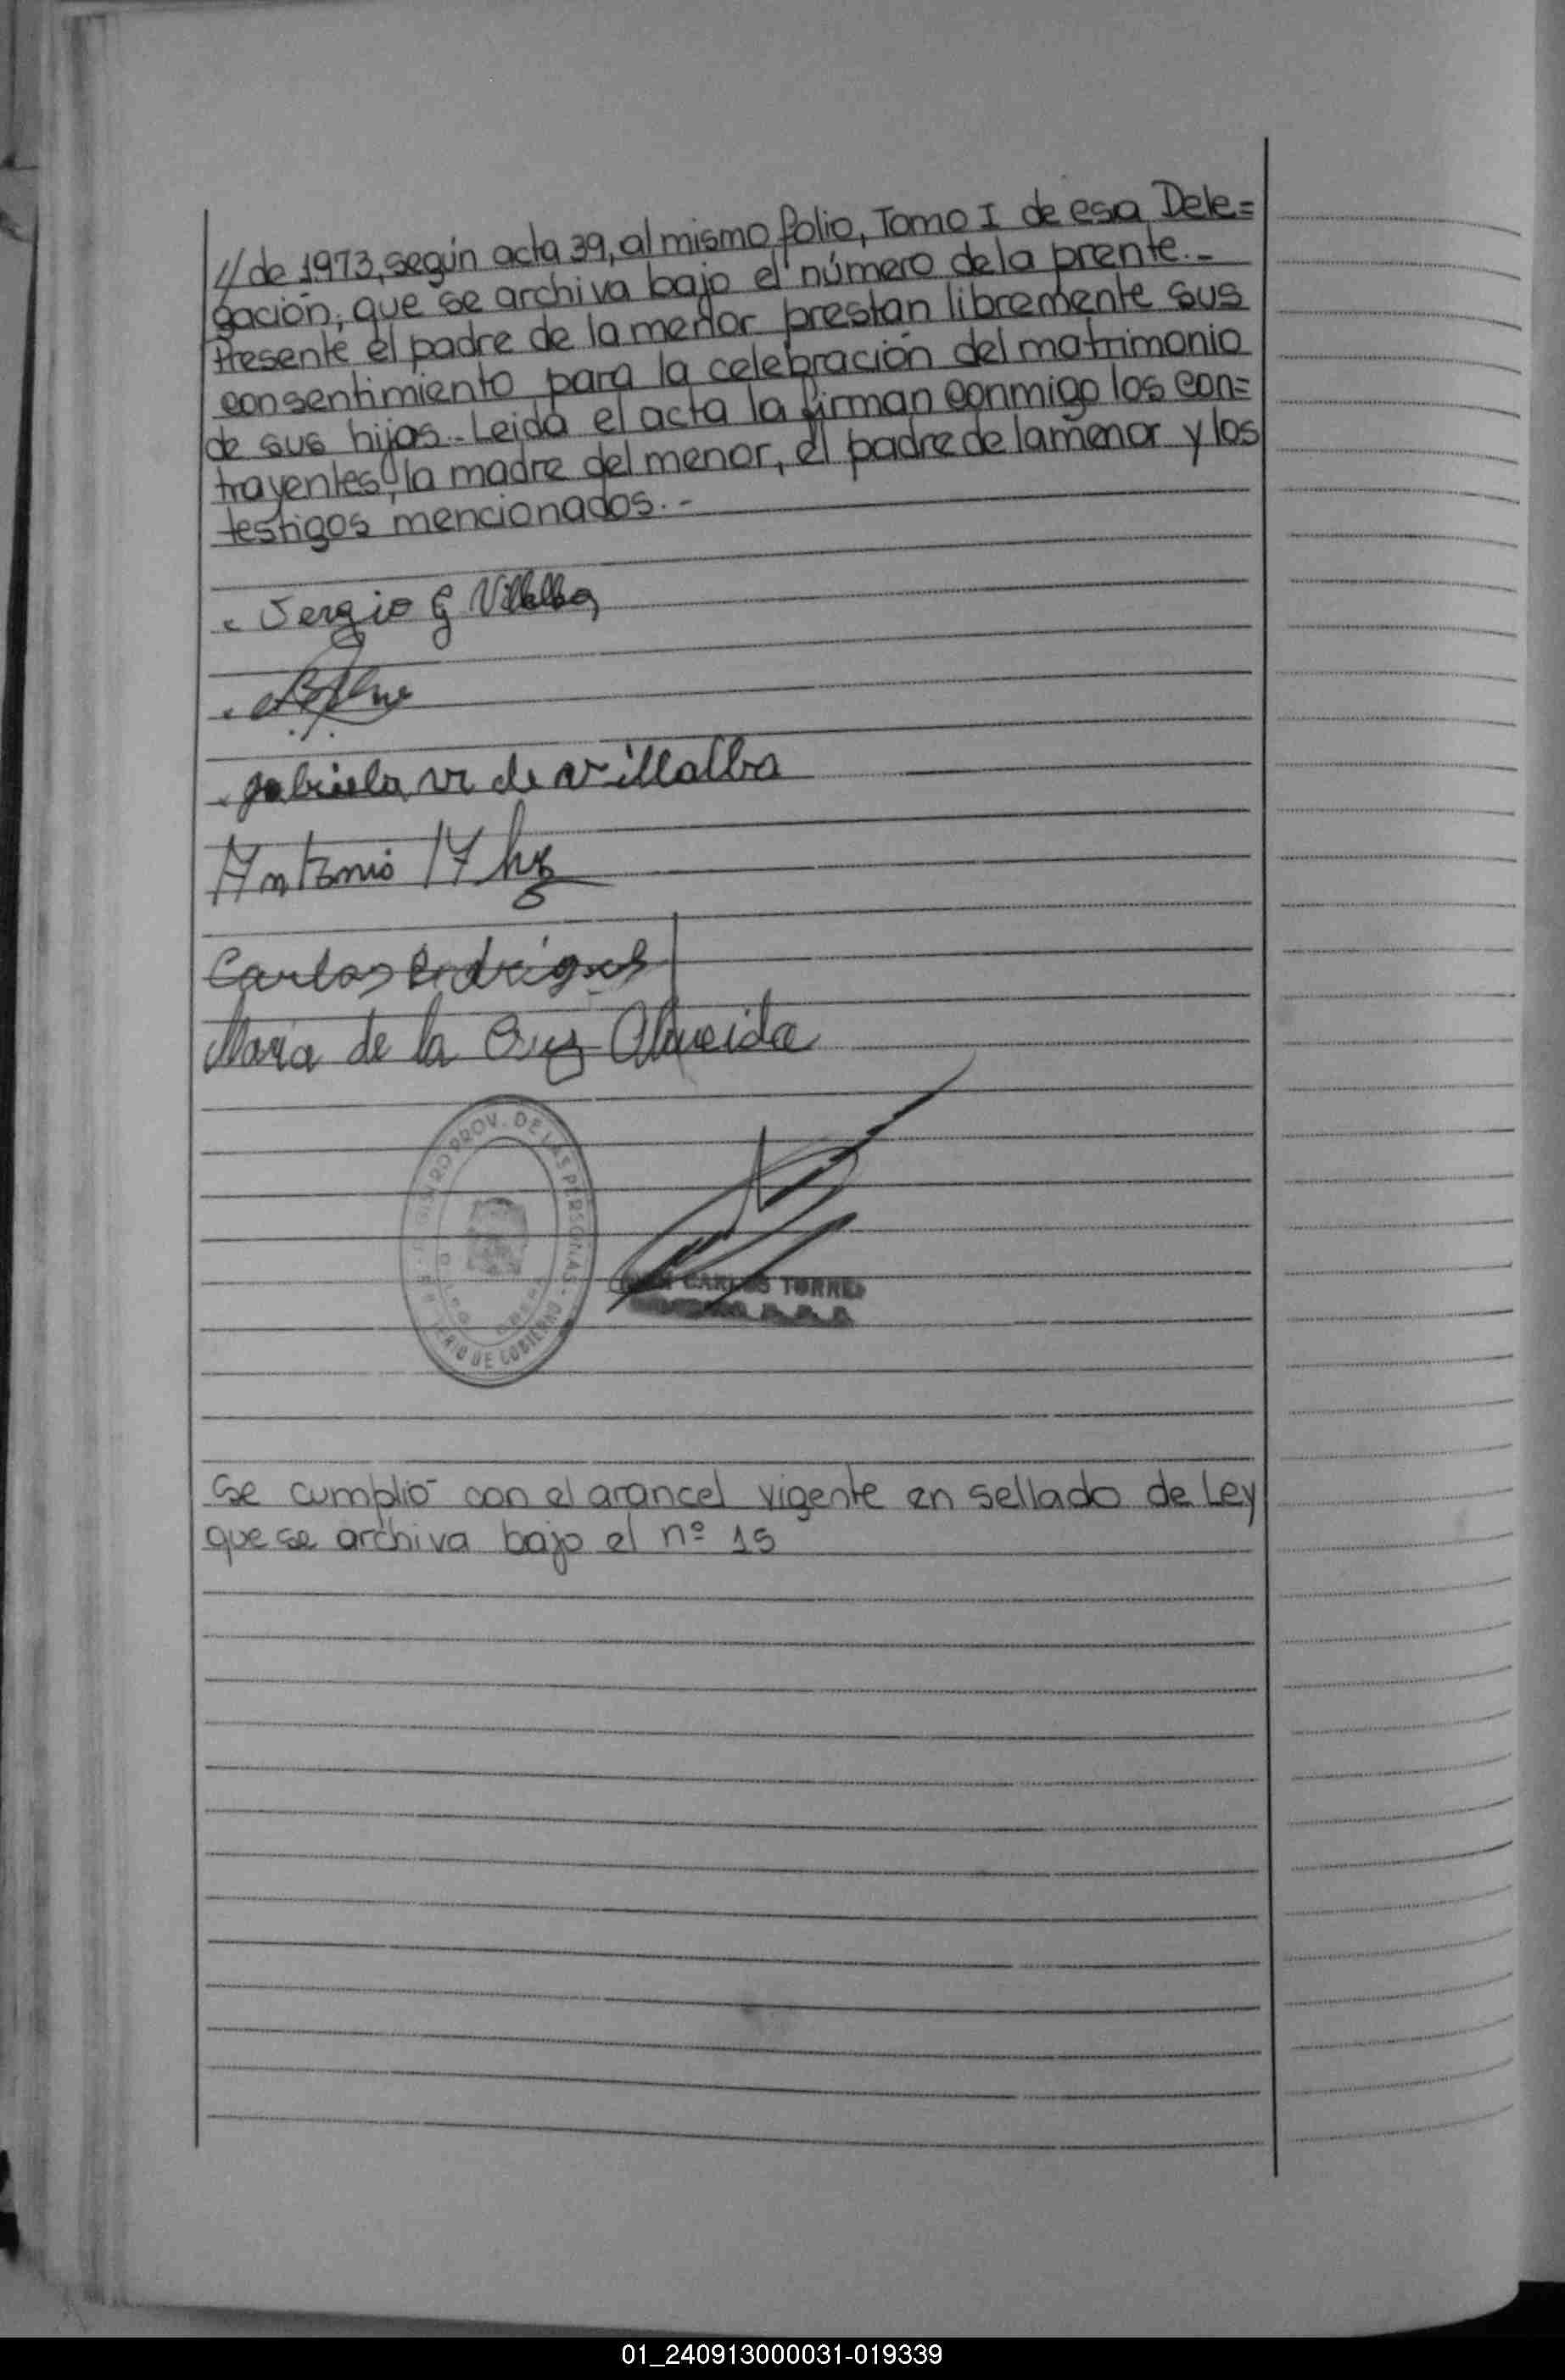 // de 1973, según acta 39, al mismo folio, Tomo I de esa Dele=
gación, que se archiva bajo el número de la prente.-
Presente el padre de la menor prestan libremente sus
consentimiento para la celebración del matrimonio
de sus hijos.- Leida el acta la firman conmigo los con=
trayentes, la madre del menor, el padre de la menor y los
testigos mencionados.-
Sergio G Villalba
gabriela v de villalba
Antonio
Carlos Rodrigues
Maria de la Cruz Almeida
PROV. DE LAS PERSONAS
DE GOBIERNO
CARLOS TORRES
Se cumplió con el arancel vigente en sellado de Ley
que se archiva bajo el nº 15
01_240913000031-019339